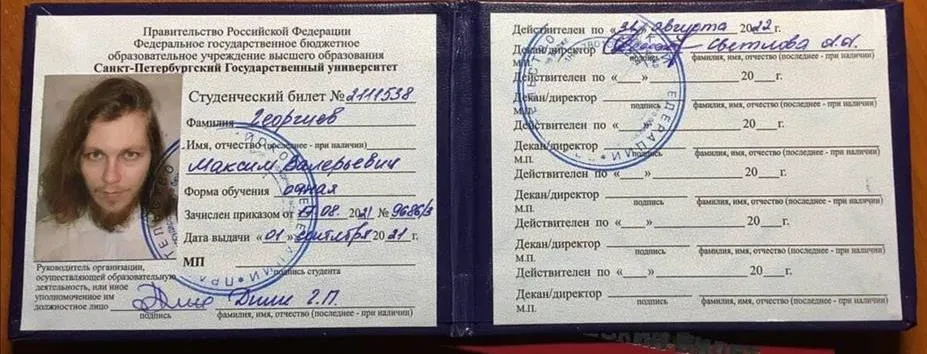 Правительство Российской Федерации
Федеральное государственное бюджетное
образовательное учреждение высшего образования
Санкт-Петербургский Государственный университет
Студенческий билет № 2111538
Фамилия Георгиев
Имя, отчество (последнее - при наличии)
Максим Валерьевич
Форма обучения очная
Зачислен приказом от 17.08. 2021 № 9686/3
Дата выдачи «01» сентября 2021 г.
МП
подпись студента
Руководитель организации,
осуществляющей образовательную
деятельность, или иное
уполномоченное им
должностное лицо
подпись фамилия, имя, отчество (последнее - при наличии)
Действителен по «31» августа 2022 г.
Декан/директор Светлова А.А.
М.П. подпись фамилия, имя, отчество (последнее - при наличии)
Действителен по «__» 20__г.
Декан/директор
М.П. подпись фамилия, имя, отчество (последнее - при наличии)
Действителен по «__» 20__г.
Декан/директор
М.П. подпись фамилия, имя, отчество (последнее - при наличии)
Действителен по «__» 20__г.
Декан/директор
М.П. подпись фамилия, имя, отчество (последнее - при наличии)
Действителен по «__» 20__г.
Декан/директор
М.П. подпись фамилия, имя, отчество (последнее - при наличии)
Действителен по «__» 20__г.
Декан/директор
М.П. подпись фамилия, имя, отчество (последнее - при наличии)